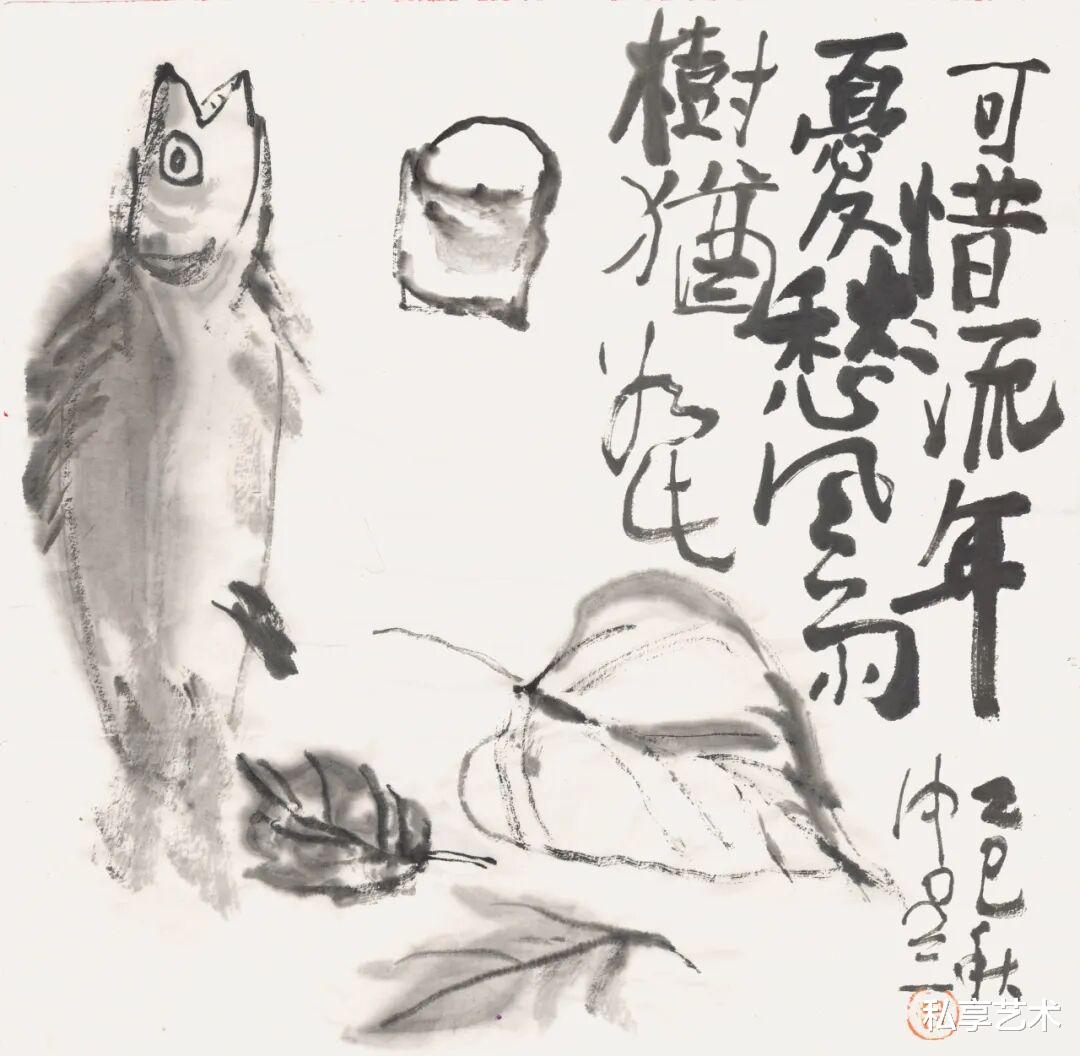 可惜流年
憂愁風雨
樹猶如此
乙巳秋
私享艺术